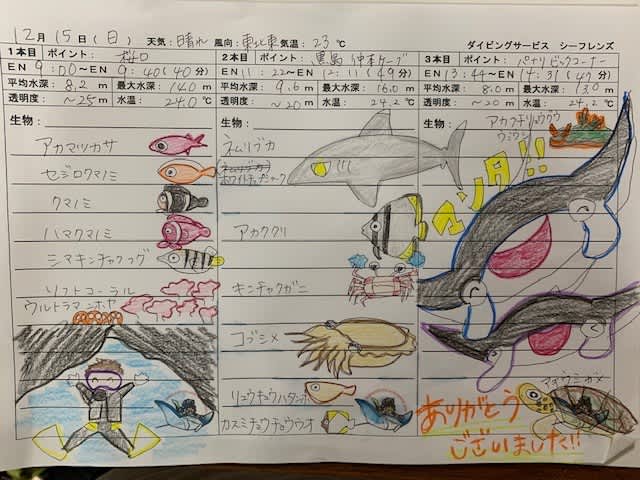 12月 15日(日) 天気:晴れ 風向:東北東 気温:23℃
ダイビングサービス シーフレンズ
1本目 ポイント:
EN 9:00〜EN 9:40(40分)
平均水深:8.2m 最大水深:14.0m
透明度:〜25m 水温:24.0℃
生物:
アカマツカサ
セジロクマノミ
クマノミ
ハマクマノミ
シマキンチャクフグ
ソフトコーラル
ウルトラマンホヤ
2本目 ポイント:黒島
EN 11:22〜EN 12:11(49分)
平均水深:9.6m 最大水深:16.0m
透明度:〜20m 水温:24.2℃
生物:
ネムリブカ
ホワイトチップシャーク
アカククリ
キンチャクガニ
コブシメ
リュウキュウハタンポ
カスミチョウチョウウオ
3本目 ポイント:パナリ ビッグコーナー
EN 13:44〜EN 14:31(47分)
平均水深:8.0m 最大水深:13.0m
透明度:〜20m 水温:24.2℃
生物:
アカフチリュウグウ
ウミウシ
マンタ!!
アオウミガメ
ありがとう
ございました!!